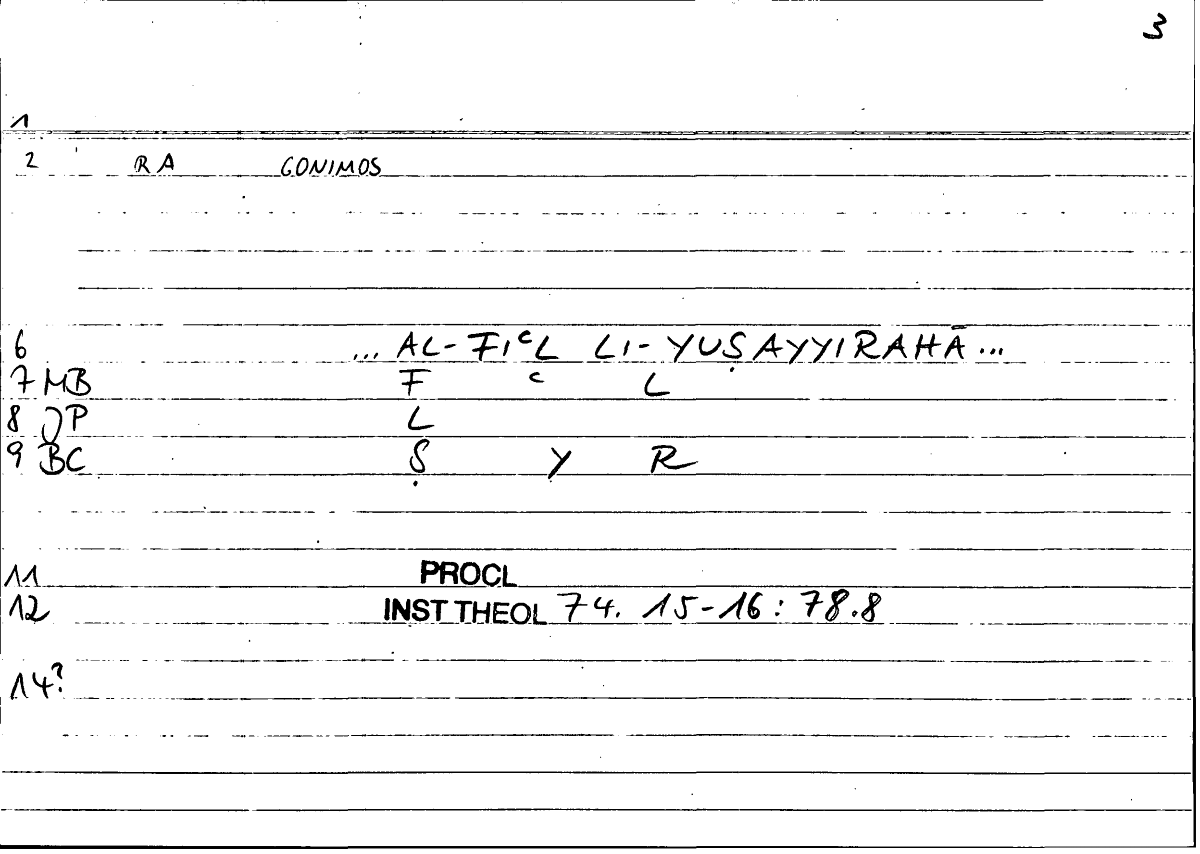 3
1
2 RA GONIMOS
6 ... AL-FIᶜL LI-YUṢAYYIRAHĀ ...
7 MB F ᶜ L
8 JP L
9 BC Ṣ Y R
11 PROCL
12 INST THEOL 74. 15-16 : 78.8
14?